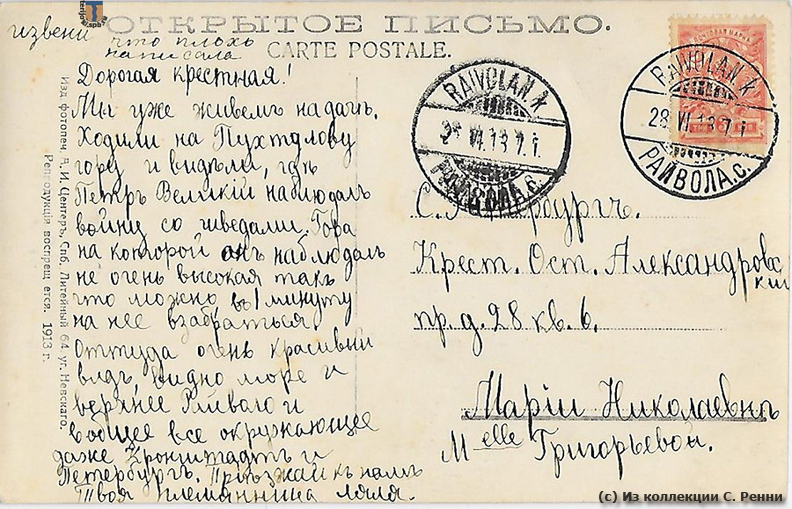 ОТКРЫТОЕ ПИСЬМО.
CARTE POSTALE.
извени
что плохъ
написала
Дорогая крестная!
Мы уже живемъ на дачѣ.
Ходили на Пухтолову
гору и видѣли, гдѣ
Петръ Великій наблюдалъ
войну со шведами. Гора
на которой онъ наблюдалъ
не очень высокая такъ
что можно въ 1 минуту
на нее взабраться.
Оттуда очень красивый
видъ, видно море и
верхнее Райволо и
вобщее все окружающее
даже Кронштадтъ и
Петербургъ. Приѣзжай къ намъ
Твоя племянница Ляля.
Изд фотопеч. А. И. Центеръ. Спб. Литейный 64 уг. Невскаго.
Репродукція воспрещается. 1913 г.
RAIVOLA N. K
VI.13 7. i.
РАЙВОЛА. С.
RAIVOLA N. K
28 VI 13 7. i
РАЙВОЛА. С.
С. Петербургъ.
Крест. Ост. Александровс
кій
пр. д. 28 кв. 6.
Маріи Николаевнѣ
Melle Григорьевой.
(c) Из коллекции С. Ренни